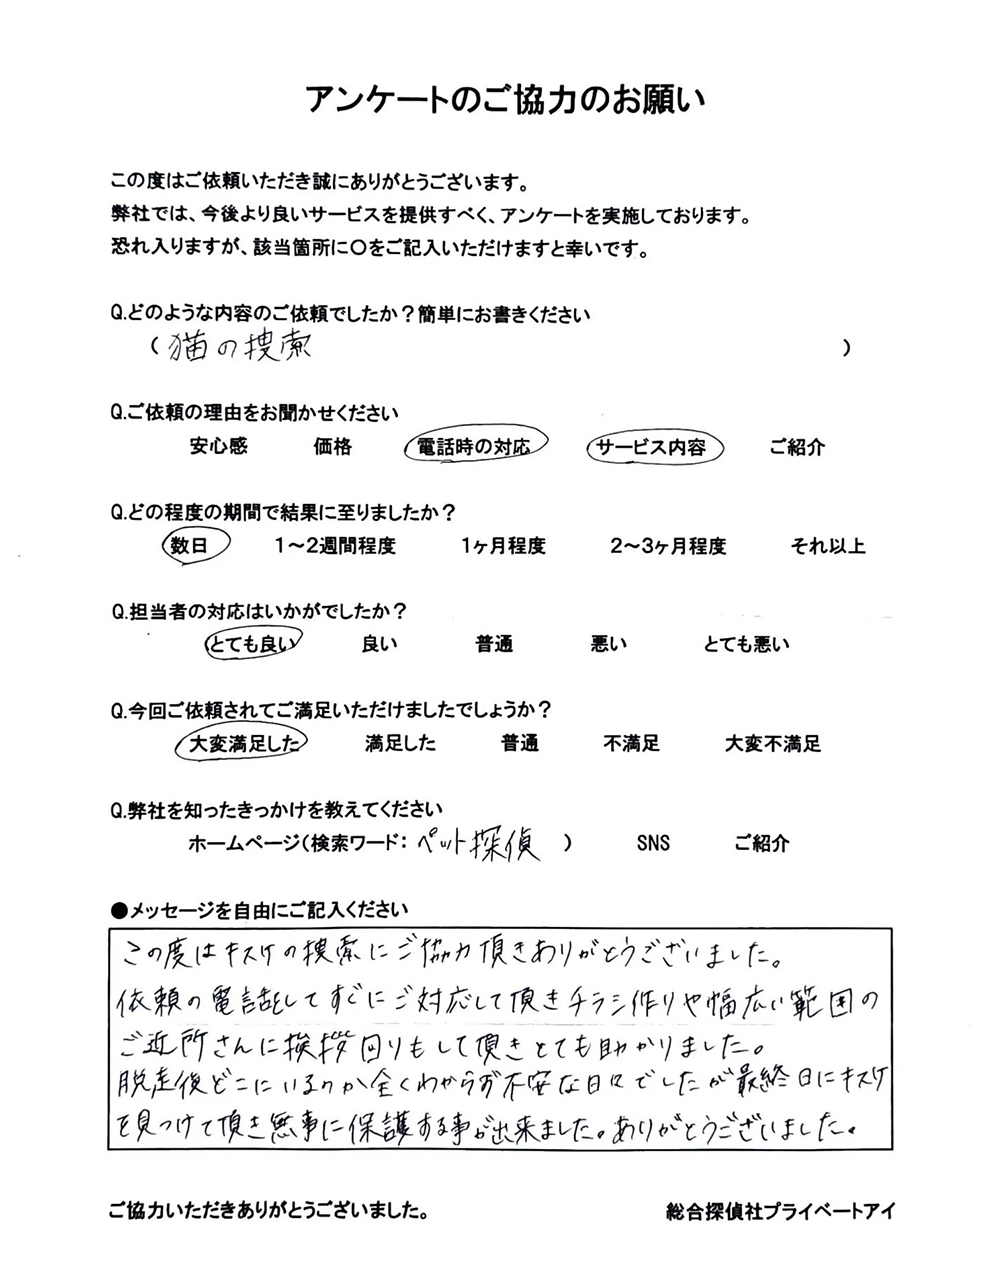 アンケートのご協力のお願い
この度はご依頼いただき誠にありがとうございます。
弊社では、今後より良いサービスを提供すべく、アンケートを実施しております。
恐れ入りますが、該当箇所に〇をご記入いただけますと幸いです。
Q.どのような内容のご依頼でしたか？簡単にお書きください
（猫の捜索）
Q.ご依頼の理由をお聞かせください
安心感 価格 電話時の対応 サービス内容 ご紹介
Q.どの程度の期間で結果に至りましたか？
数日 1～2週間程度 1ヶ月程度 2～3ヶ月程度 それ以上
Q.担当者の対応はいかがでしたか？
とても良い 良い 普通 悪い とても悪い
Q.今回ご依頼されてご満足いただけましたでしょうか？
大変満足した 満足した 普通 不満足 大変不満足
Q.弊社を知ったきっかけを教えてください
ホームページ（検索ワード：ペット探偵） SNS ご紹介
●メッセージを自由にご記入ください
この度はキスケの捜索にご協力頂きありがとうございました。
依頼の電話をしてすぐにご対応して頂きチラシ作りや幅広い範囲の
ご近所さんに挨拶回りもして頂きとても助かりました。
脱走後どこにいるのか全くわからず不安な日々でしたが最終日にキスケ
を見つけて頂き無事に保護する事が出来ました。ありがとうございました。
ご協力いただきありがとうございました。
総合探偵社プライベートアイ